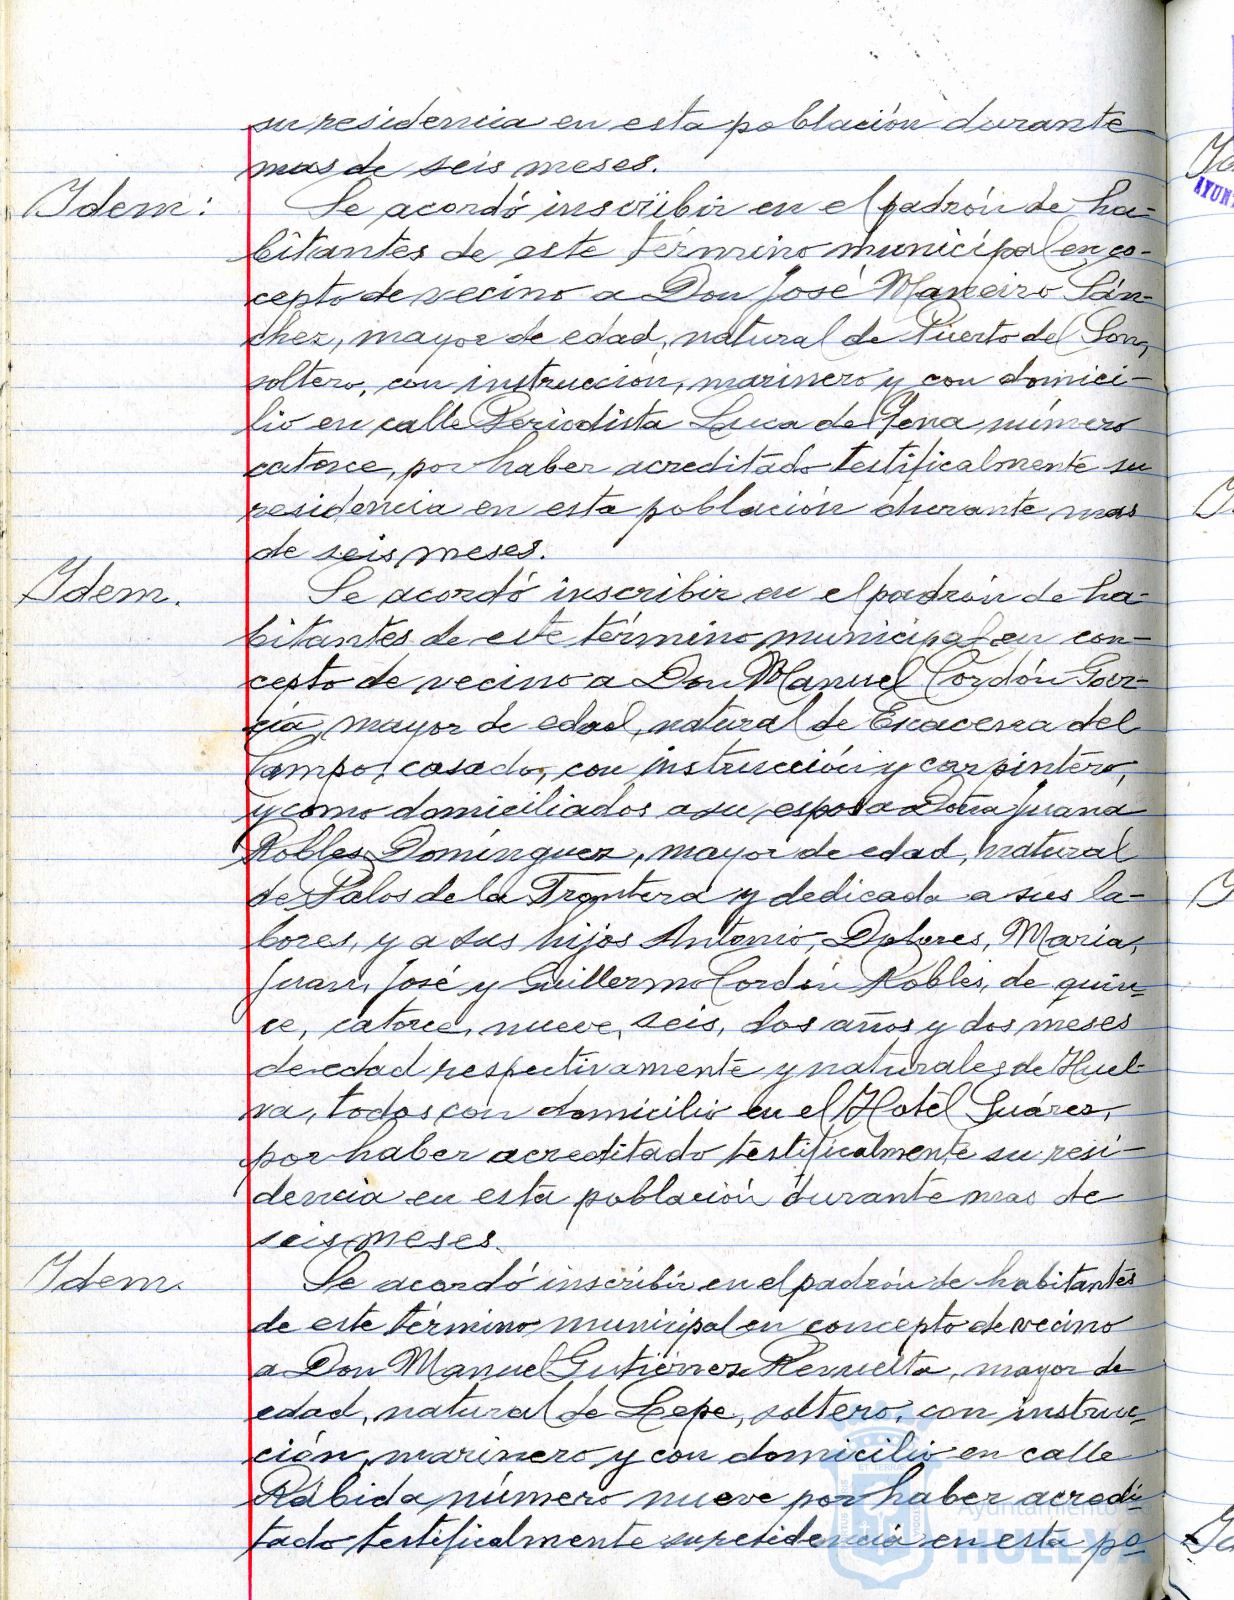 su residencia en esta población durante
mas de seis meses.
Idem: Se acordó inscribir en el padrón de ha-
bitantes de este término municipal en co-
cepto de vecino a Don José Maneiro Sán-
chez, mayor de edad, natural de Puerto del Son,
soltero, con instrucción, marinero y con domici-
lio en calle Periodista Luca de Tena número
catorce, por haber acreditado testificalmente su
residencia en esta población durante mas
de seis meses.
Idem. Se acordó inscribir en el padrón de ha-
bitantes de este término municipal en con-
cepto de vecino a Don Manuel Cordón Gar-
cía, mayor de edad, natural de Escacena del
Campo, casado, con instrucción y carpintero,
y como domiciliados a su esposa Doña Juana
Robles Domínguez, mayor de edad, natural
de Palos de la Frontera y dedicada a sus la-
bores, y a sus hijos Antonio, Dolores, Maria,
Juan, José y Guillermo Cordón Robles, de quin-
ce, catorce, nueve, seis, dos años y dos meses
de edad respectivamente y naturales de Huel-
va, todos con domicilio en el Hotel Suárez,
por haber acreditado testificalmente su resi-
dencia en esta población durante mas de
seis meses.
Idem. Se acordó inscribir en el padrón de habitantes
de este término municipal en concepto de vecino
a Don Manuel Gutiérrez Revuelta, mayor de
edad, natural de Lepe, soltero, con instruc-
ción, marinero y con domicilio en calle
Rábida número nueve por haber acredi-
tado testificalmente su residencia en esta po-
Ayuntamiento de
HUELVA